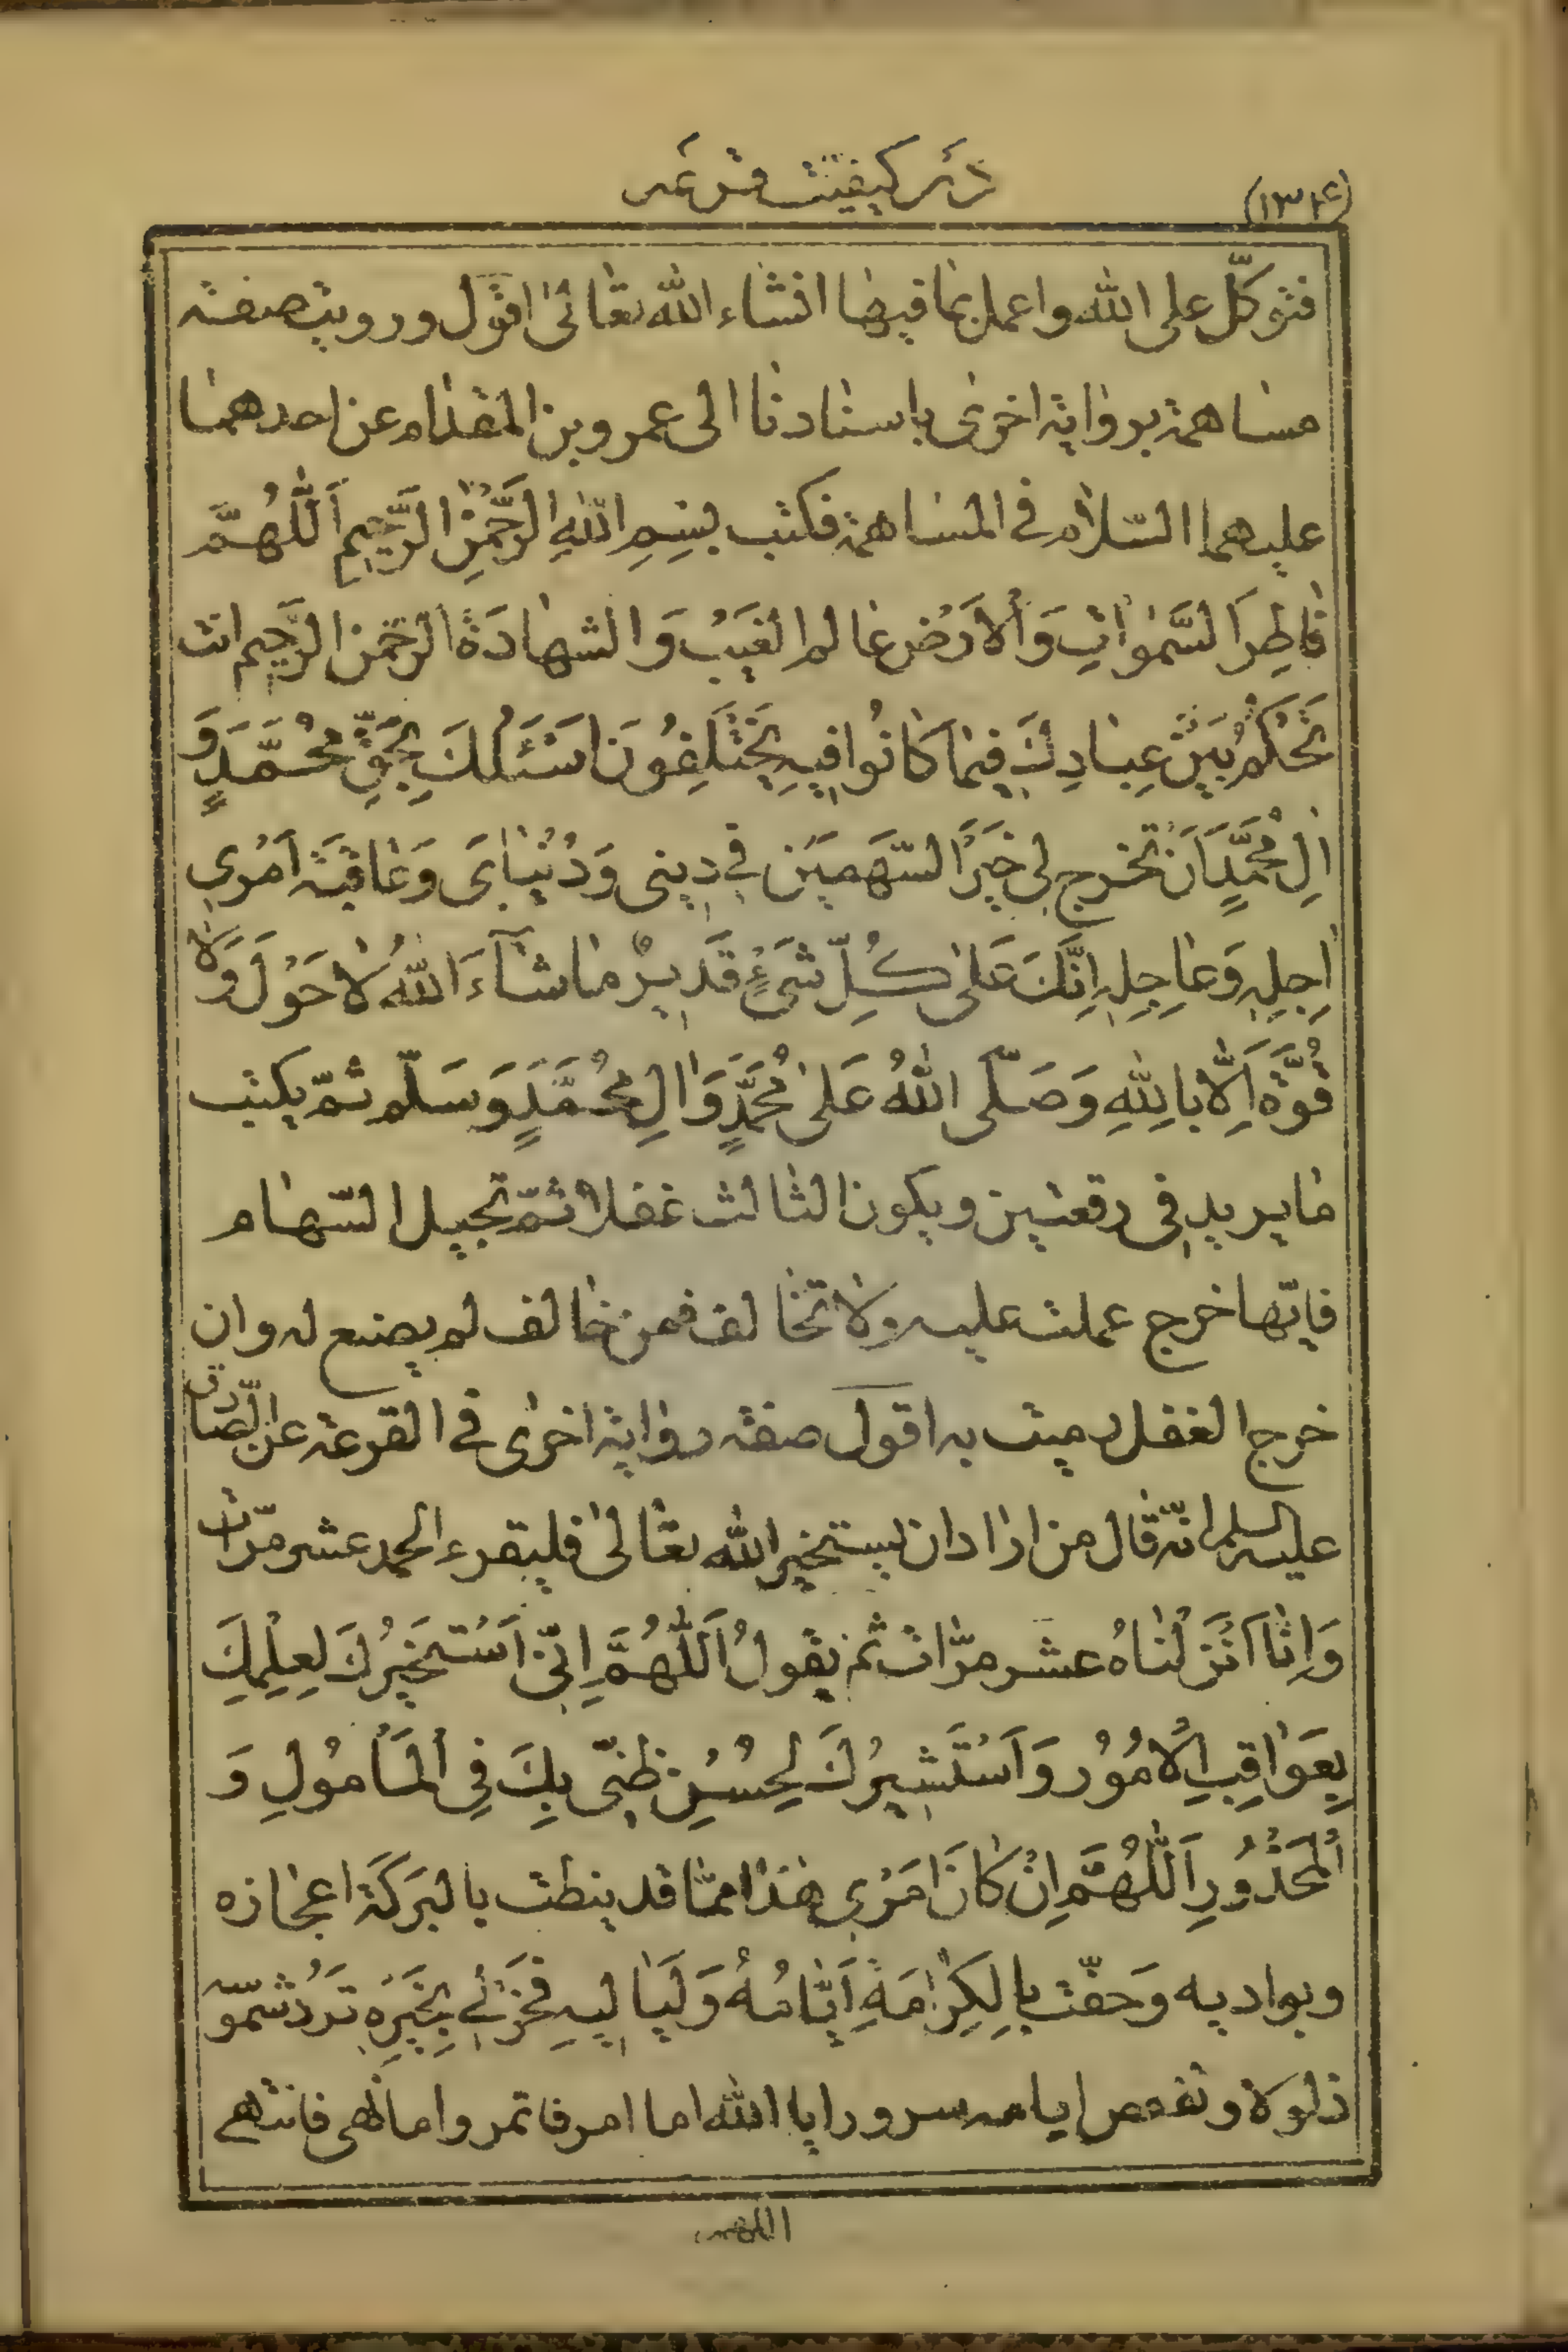 ذكر كيفيت قرعه
(١٣٤)
فتوكّل على الله واعمل بما فيها انشاء الله تعالىٰ اقول ورويت صفة
مساهمة برواية اخرى باسنادنا الى عمرو بن المقدام عن احدهما
عليهما السّلام في المساهمة فكتب بِسْمِ اللهِ الرَّحْمٰنِ الرَّحيمِ اَللّٰهُمَّ
فٰاطِرَ السَّمٰوٰاتِ وَالْاَرْضِ عٰالم الغَيْبِ وَالشهٰادَةِ الرحمٰن الرَّحيم انت
تَحْكُمُ بَيْنَ عِبٰادِكَ فيمٰا كٰانُوا فيهِ يَخْتَلِفُونَ اسَئَلُكَ بِحَقِّ مُحَمَّدٍ وَ
اٰلِ مُحَمَّدٍ اَنْ تخرج لي خَيْرَ السَّهمَيْنِ في ديني وَدُنْيٰايَ وَعٰاقبَة اَمْري
اٰجِلِهِ وَعٰاجِلِهِ اِنَّكَ عَلىٰ كُلِّ شَيْءٍ قَديرٌ مٰا شٰآءَ اللهُ لٰا حَوْلَ وَلٰا
قُوَّةَ اِلّٰا بِاللهِ وَصَلَّى اللهُ عَلىٰ مُحَمَّدٍ وَاٰلِ مُحَمَّدٍ وَسَلّم ثمّ يكتب
مٰا يريد في رقعتين ويكون الثالث غفلا ثمّ تجيل السّهام
فايّها خرج عملت عليه ولا تخالف فمن خالف لم يصنع له وان
خرج الغفل رميت به اقول صفة رواية اخرى في القرعة عن الصّادق
عليه السلم انّه قال من اراد ان يستخير الله تعالىٰ فليقرء الحمد عشر مرّات
وَاِنّٰا اَنْزَلْنٰاهُ عشر مرّات ثم يقولُ اَللّٰهُمَّ اِنّي اَسْتَخيرُكَ لِعِلْمِكَ
بِعَوٰاقِبِ الْاُمُورِ وَاَسْتَشيرُكَ لِحُسْنِ ظَنّي بِكَ فِي الْمَأمُولِ وَ
الْمَحْذُورِ اَللّٰهُمَّ اِنْ كٰانَ اَمْري هٰذا ممّا قد ينطت بالبَرَكَة اعجازه
وبواديه وَحفّت بِالْكِرٰامَةِ اَيّٰامُهُ وَلَيٰاليهِ فَخِرْلي بِخَيْرَةٍ تَرُدُّ شمّوسه
ذلولا وتقعص ايامه سرورا يا الله اما امر فاتمر واما نهي فانتهي
اللهم